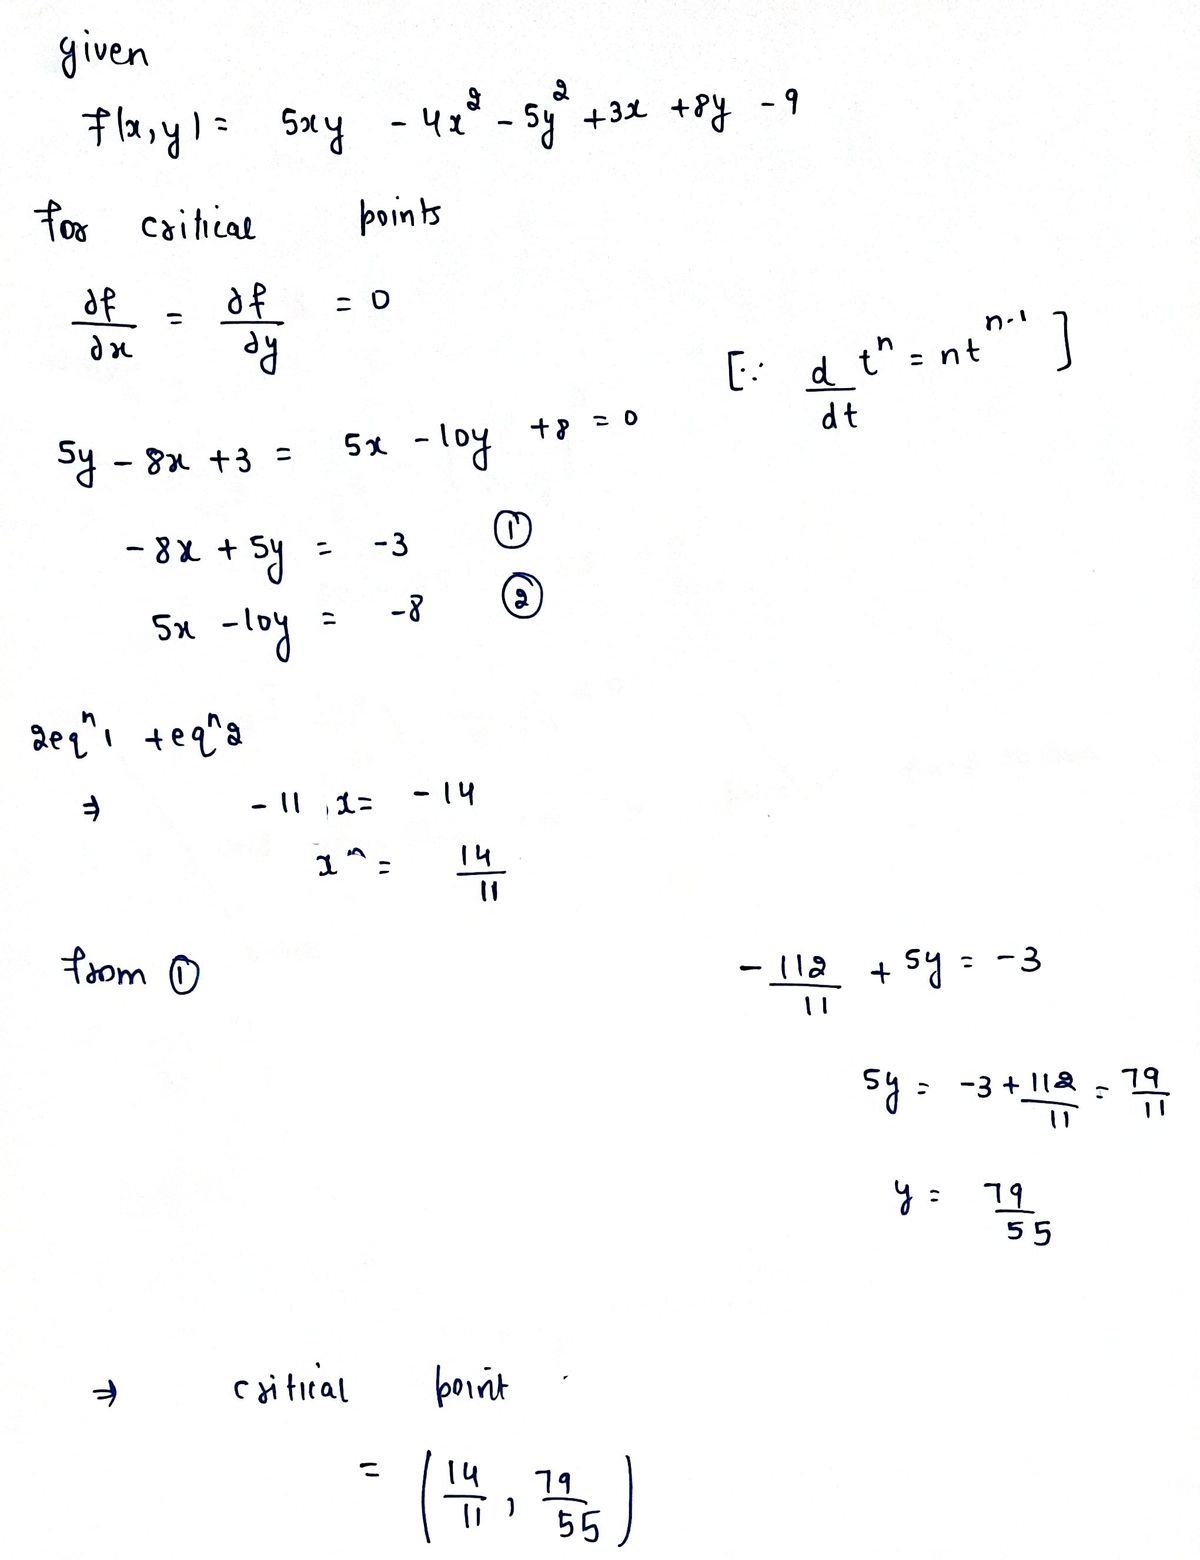 given
f(x,y) = 5xy - 4x² - 5y² + 3x + 8y - 9
for critical points
∂f/∂x = ∂f/∂y = 0
[∵ d/dt tⁿ = ntⁿ⁻¹]
5y - 8x + 3 = 5x - 10y + 8 = 0
-8x + 5y = -3 ①
5x - 10y = -8 ②
2eqⁿ1 + eqⁿ2
⇒ -11 x = -14
x = 14/11
from ①
-112/11 + 5y = -3
5y = -3 + 112/11 = 79/11
y = 79/55
⇒ critical point
= (14/11, 79/55)